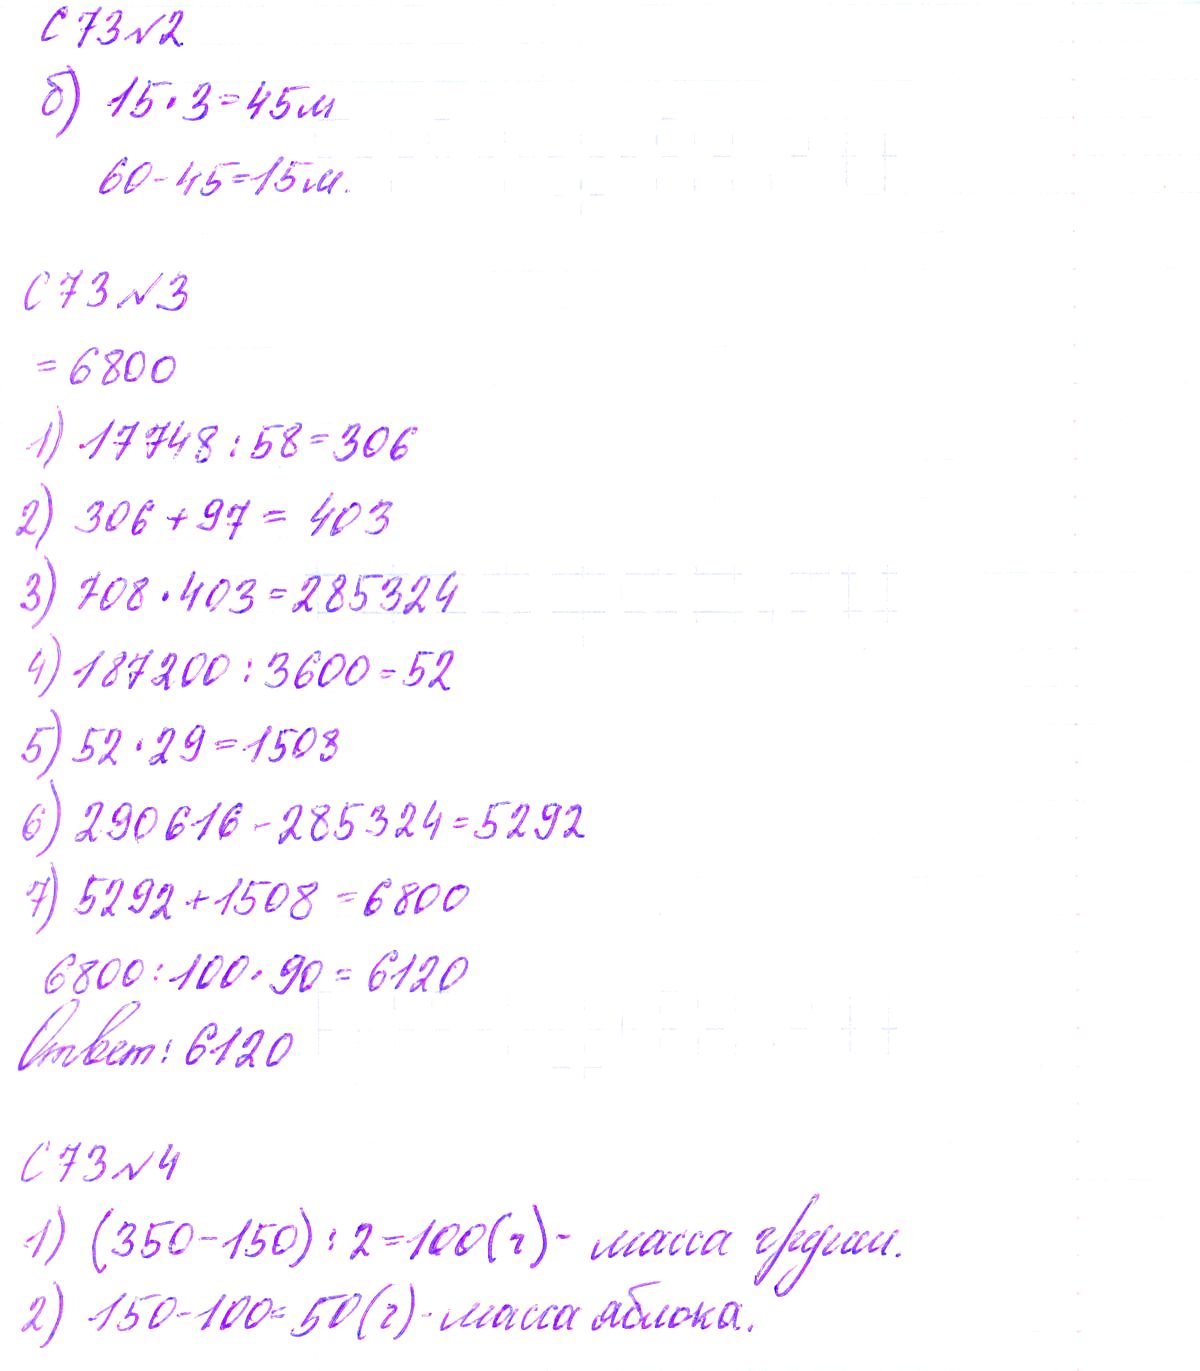 С 73 №2
б) 15·3=45м
60-45=15м.
С 73 №3
= 6800
1) 17748:58=306
2) 306+97= 403
3) 708·403=285324
4) 187200:3600=52
5) 52·29=1508
6) 290616-285324=5292
7) 5292+1508=6800
6800:100·90=6120
Ответ: 6120
С 73 №4
1) (350-150):2=100(г)- масса груши.
2) 150-100=50(г)-масса яблока.